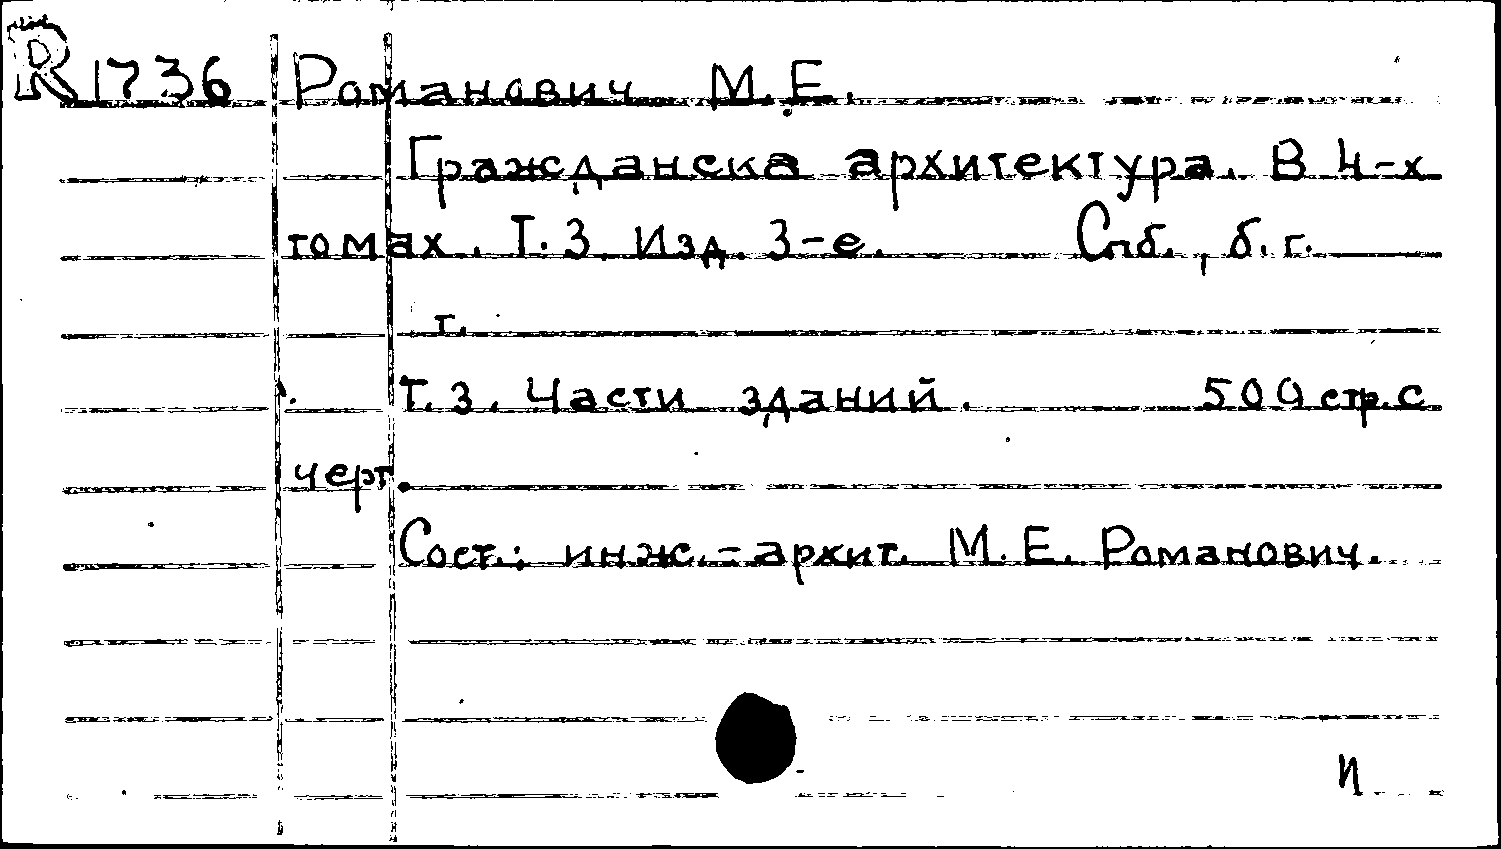 R1736 Романович М.Е.
Гражданска архитектура. В 4-х
томах. Т.3 Изд. 3-е. Спб., б.г.
г.
Т.3. Части зданий. 500 стр. с
черт.
Сост.: инж.-архит. М.Е. Романович.
И